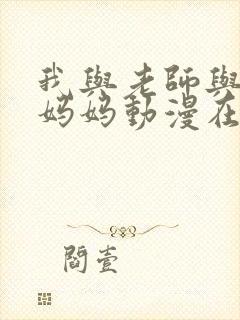 我與老師與
妈妈動漫在
閻壹